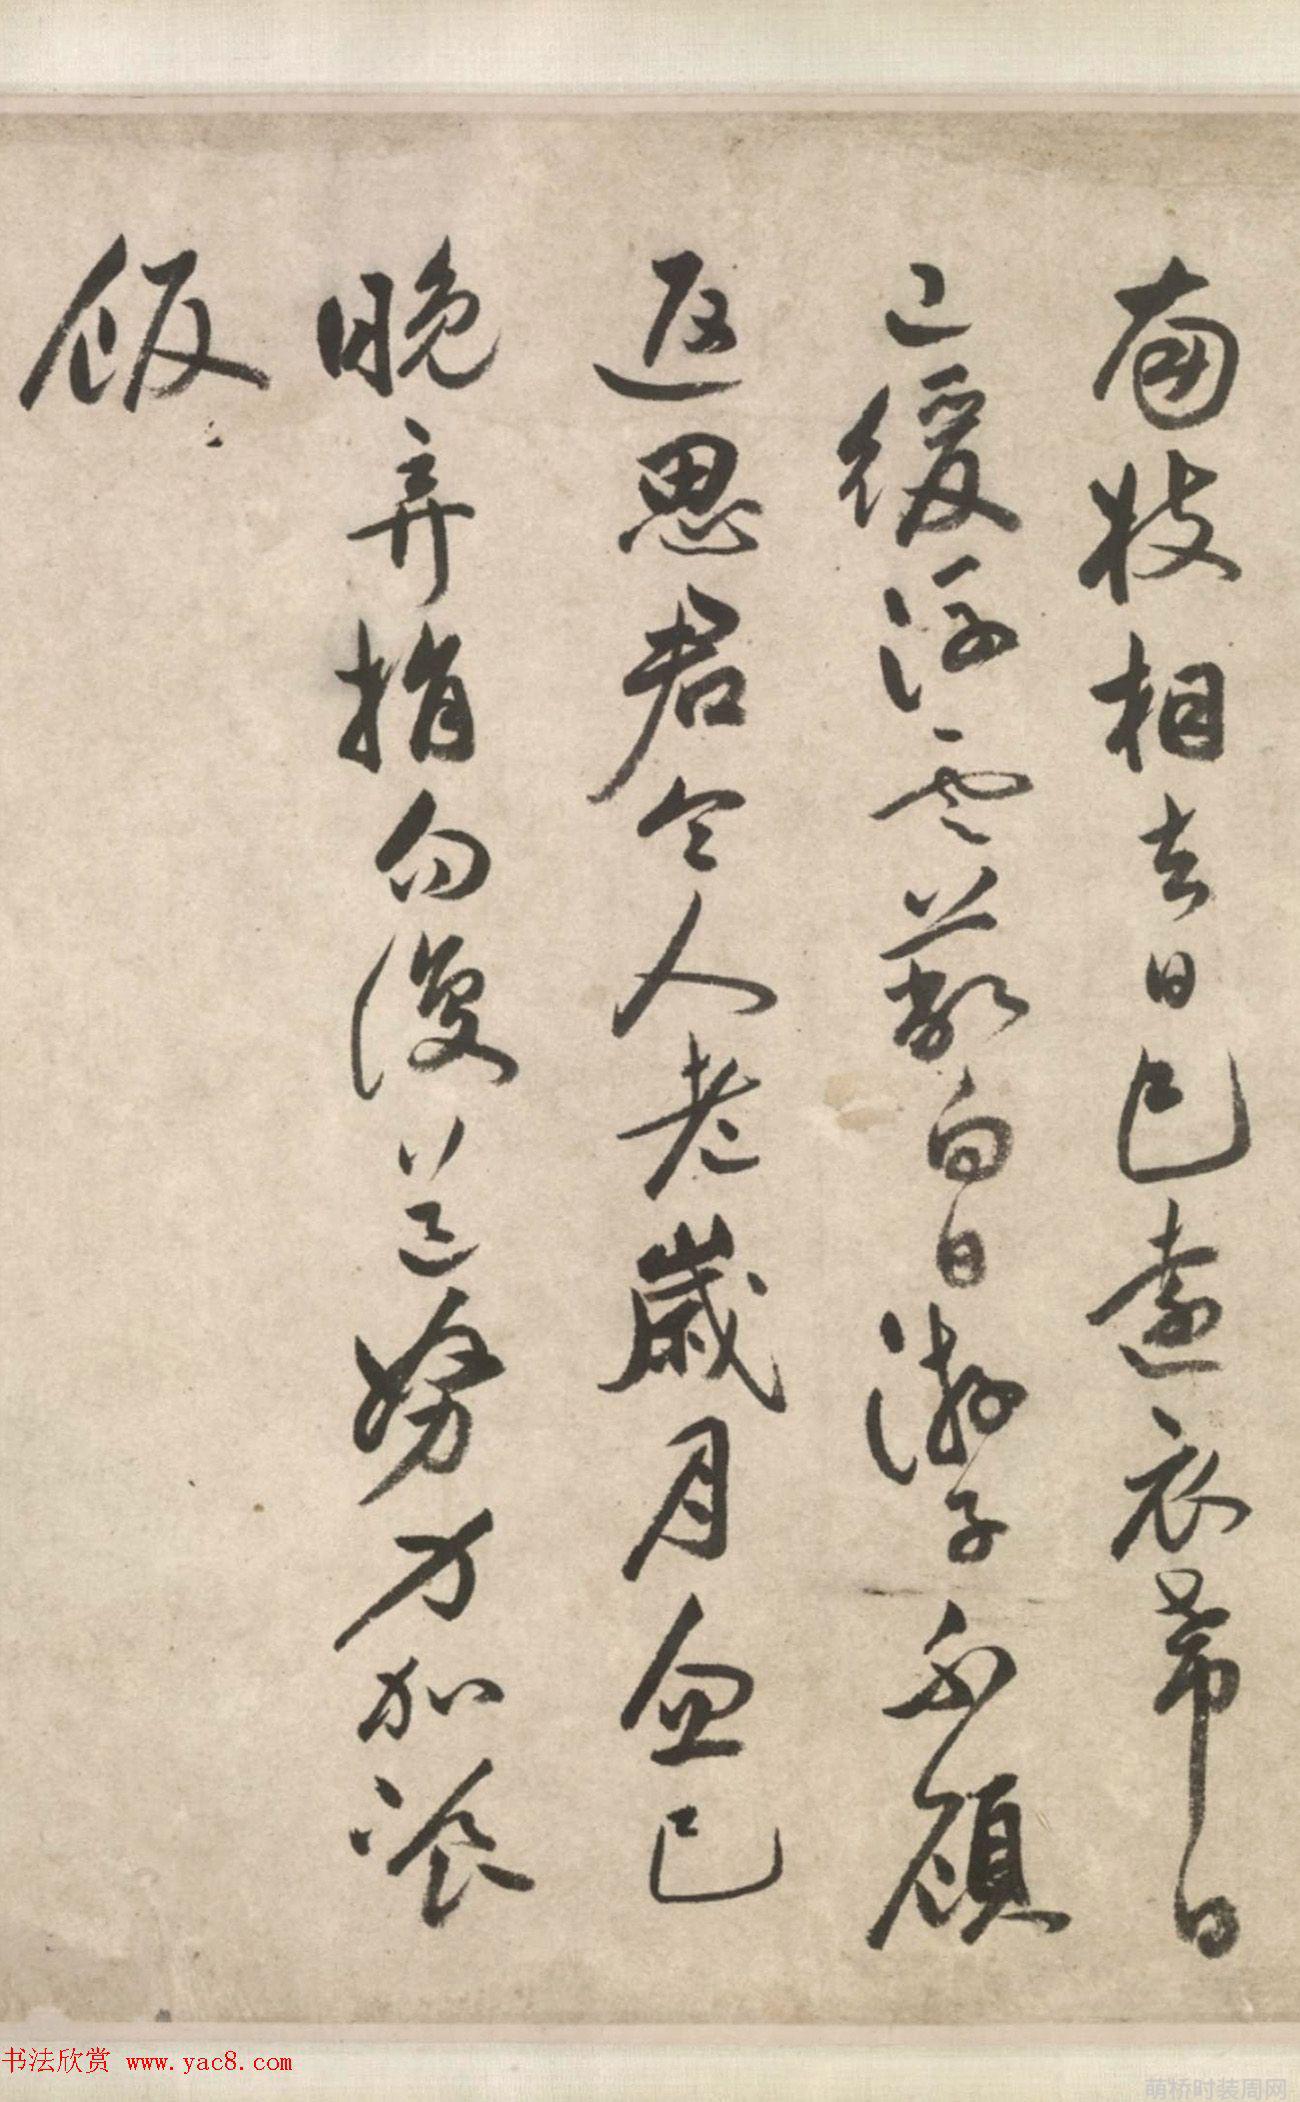 南枝相去日已遠衣帶日
已緩浮雲蔽白日游子不顧
返思君令人老歲月忽已
晚弃捐勿復道努力加餐
飯
书法欣赏 www.yac8.com
萌桥时装周网